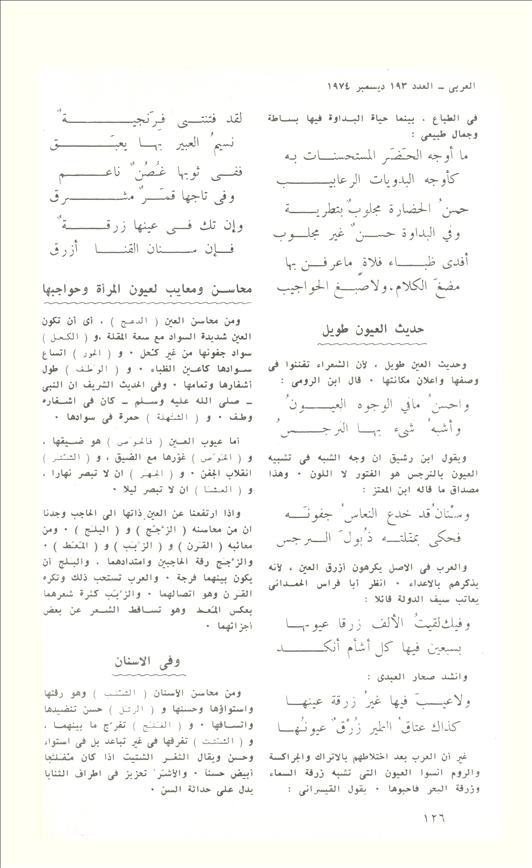 العربي – العدد ١٩٣ ديسمبر ١٩٧٤
في الطباع ، بينما حياة البداوة فيها بساطة
وجمال طبيعي :
ما أوجه الحَضَر المستحسنات به
كأوجه البدويات الرعابيب
حسنُ الحضارة مجلوبٌ بتطرية
وفي البداوة حسنٌ غير مجلوب
أفدى ظباء فلاةٍ ماعرفن بها
مضغَ الكلام ، ولاصبغ الحواجيب
حديث العيون طويل
وحديث العين طويل ، لأن الشعراء تفننوا في
وصفها واعلان مكانتها ٠ قال ابن الرومي :
واحسنُ مافي الوجوه العيونُ
وأشبهُ شيء بها النرجسُ
ويقول ابن رشيق ان وجه الشبه في تشبيه
العيون بالنرجس هو الفتور لا اللون ٠ وهذا
مصداق ما قاله ابن المعتز :
وسْنانُ قد خدع النعاسُ جفونَه
فحكى بمقلته ذبولَ النرجس
والعرب في الاصل يكرهون أزرق العين ، لأنه
يذكرهم بالاعداء ٠ انظر أبا فراس الحمداني
يعاتب سيف الدولة قائلا :
وفيك لقيتُ الألف زرقا عيونها
بسبعين فيها كل أشأم أنكد
وانشد صحار العبدى :
ولاعيبَ فيها غيرُ زرقة عينها
كذاك عتاقُ الطير زُرْقٌ عيونُها
غير أن العرب بعد اختلاطهم بالاتراك والجراكسة
والروم انسوا العيون التي تشبه زرقة السماء
وزرقة البحر فاحبوها ٠ يقول القيسراني :
لقد فتنتني فرَنجيةٌ
نسيمُ العبير بها يعبَق
ففي ثوبها غُصُنٌ ناعم
وفي تاجها قمَرٌ مشرق
وإن تك في عينها زرقةٌ
فإن سنان القنا أزرق
محاسن ومعايب لعيون المرأة وحواجبها
ومن محاسن العين ( الدعج ) ، أي أن تكون
العين شديدة السواد مع سعة المقلة ،و ( الكحل )
سواد جفونها من غير كحل ٠ و ( الحور ) اتساع
سوادها كاعين الظباء ٠ و ( الوطف ) طول
أشفارها وتمامها ٠ وفي الحديث الشريف ان النبي
– صلى الله عليه وسلم – كان في اشفاره
وطف ٠ و ( الشهلة ) حمرة في سوادها ٠
أما عيوب العين ( فالحوص ) هو ضيقها ،
و ( الخوص ) غؤرها مع الضيق ، و ( الشتر )
انقلاب الجفن ٠ و ( الجهر ) ان لا تبصر نهارا ،
و ( العشا ) ان لا تبصر ليلا ٠
واذا ارتفعنا عن العين ذاتها الى الحاجب وجدنا
ان من محاسنه ( الزجج ) و ( البلج ) ٠ ومن
معائبه ( القرن ) و ( الزبب ) و ( المعط ) ٠
والزجج رقة الحاجبين وامتدادهما ، والبلج أن
يكون بينهما فرجة ٠ والعرب تستحب ذلك وتكره
القرن وهو اتصالهما ٠ والزبب كثرة شعرهما
بعكس المعط وهو تساقط الشعر عن بعض
أجزائهما ٠
وفي الاسنان
ومن محاسن الأسنان ( الشنب ) وهو رقتها
واستواؤها وحسنها و ( الرتل ) حسن تنضيدها
واتساقها ٠ و ( الفلج ) تفرج ما بينهما ،
و ( الشتت ) تفرقها في غير تباعد بل في استواء
وحسن ويقال الثغر الشتيت اذا كان مفلجا
أبيض حسنا ٠ والأشر تعزيز في اطراف الثنايا
يدل على حداثة السن ٠
١٢٦